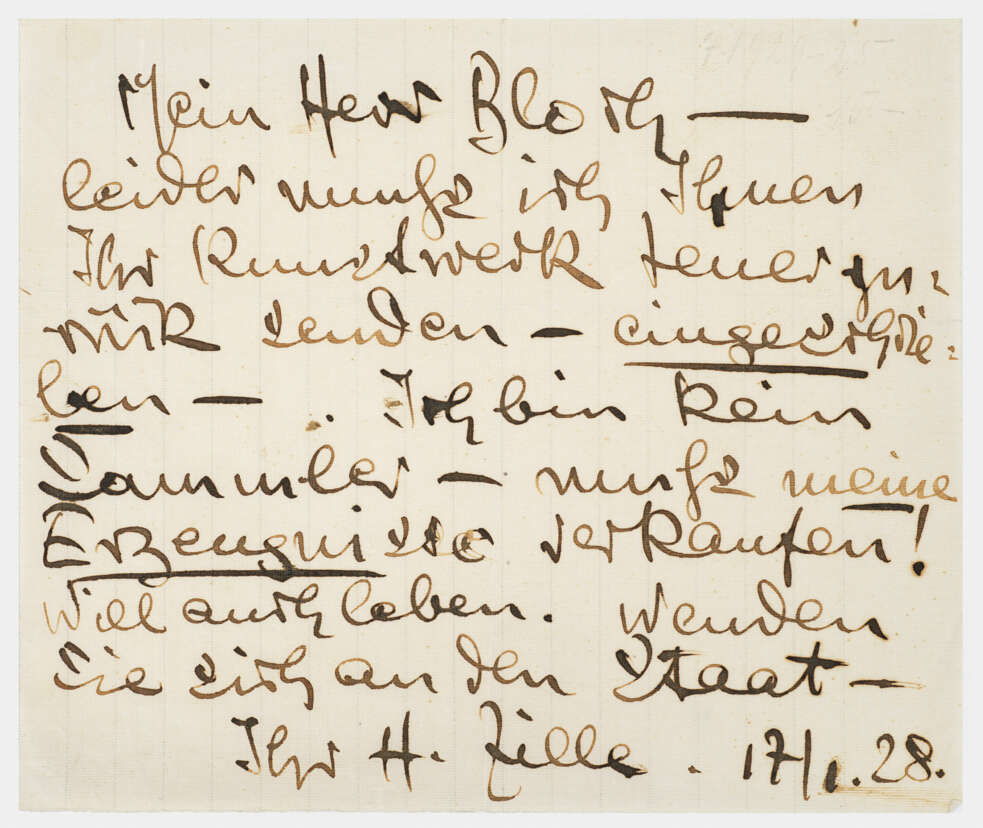 Mein Herr Bloch —
leider muß ich Ihnen
Ihr Kunstwerk teuer zu-
rück senden — eingeschrie-
ben — . Ich bin kein
Sammler — muß meine
Erzeugnisse verkaufen!
Will auch leben. Wenden
Sie sich an den Staat —
Ihr H. Zille. 17/1.28.